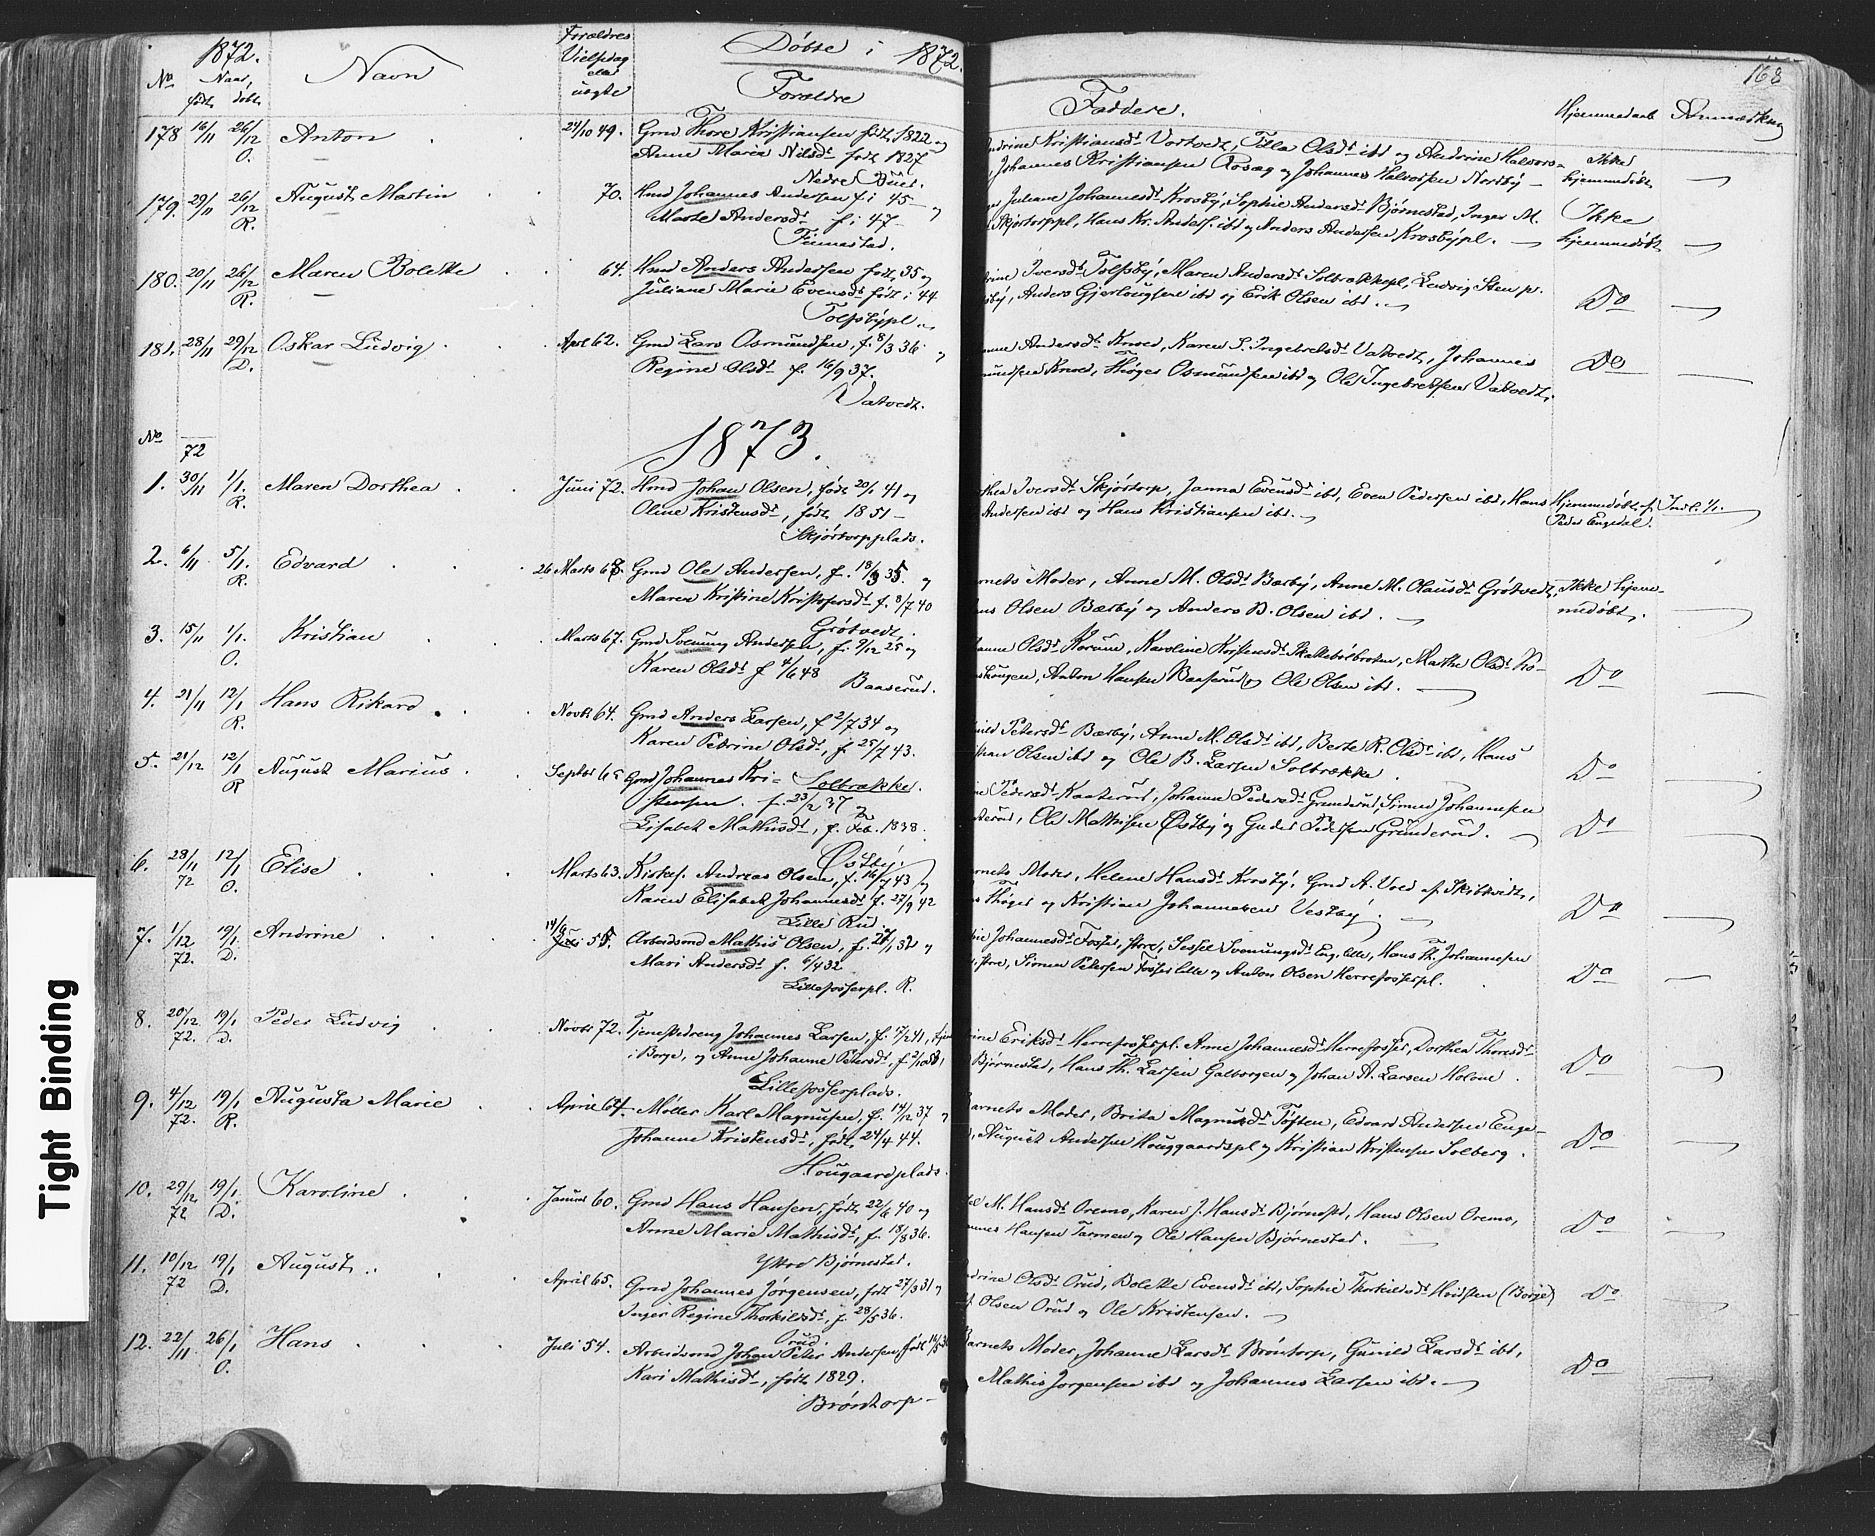 1872.
Døbte i 1872.
168
No
Naar
født
døbt
Navn
Forældres
Vielsdag
eller
uægte
Forældre
Faddere.
Hjemmedøbt
Anmærkning
178 16/11 26/12 Anton 24/10 49. Gmd Thore Kristiansen født 1822 og
O. Anne Maria Nilsdr født 1827
Nedre Buer.
Kristiansdr Vortvedt, Tilla Olsdr ibd og Andrine Halvors-
Johannes Kristiansen Aasæg og Johannes Halvorsen Norby
Ikke
hjemmedøbt
179. 29/11 26/12 August Martin 70. Hmd Johannes Andersen f. i 45 og
R. Marte Andersdr f. i 47
Finnestad.
Juliane Johannesdr Krosby, Sophie Andersdr Bjørnestad, Inger M.
Skjørtorppl, Hans Kr. Anders. ibd og Anders Andersen Krosbypl.
Ikke
hjemmedøbt
180. 20/11 26/12 Maren Bolette 64. Hmd Anders Andersen født 35 og
R. Juliane Marie Evensdr født i 44
Tolfsbypl
Iversdr Tolfsby, Maren Andersdr Solbrækkepl, Ludvig Sten p.
Anders Gjerlougsen ibd og Erik Olsen ibd.
Do
181. 28/11 29/12 Oskar Ludvig April 62. Gmd Lars Osmundsen, f. 8/3 36 og
D. Regine Olsdr f. 16/9 37.
Vatvedt.
Andersdr Knoed, Karen S. Ingebretsdr Vatvedt, Johannes
Knoed, Thøger Osmundsen ibd og Ole Ingebretsen Vatvedt.
Do
No
72
1873.
1. 30/11 1/1. Maren Dorthea Juni 72. Hmd Johan Olsen, født 20/1 41 og
R. Oline Kristensdr, født 1851
Skjørtorpplads.
Iversdr Skjørtorp, Janna Evensdr ibd, Even Pedersen ibd, Hans
Andersen ibd og Hans Kristiansen ibd.
Hjemmedøbt af
Peder Engedal.
Indl. 1/1.
2. 6/11 5/1. Edvard 26 Marts 68. Gmd Ole Andersen, f. 18/3 35. og
R. Maren Kristine Kristofersdr f. 8/7 40
Grøtvedt.
Moder, Anne M. Olsdr Bærby, Anne M. Olausdr Grøtvedt,
Olsen Bærby og Anders B. Olsen ibd.
Ikke hjem-
medøbt.
3. 15/11 1/1. Kristian Marts 67. Gmd Svenung Andersen, f. 9/12 25 og
O. Karen Olsdr f 4/6 48
Baaserud.
Olsdr Korum, Karoline Kristensdr Skallebølbroten, Marthe Olsdr Ko-
Anton Hansen Baaserud og Ole Olsen ibd.
Do
4. 21/11 12/1 Hans Rikard Novbr 64. Gmd Anders Larsen, f 2/7 34 og
R. Karen Petrine Olsdr, f 25/7 43.
Solbrække.
Petersdr Bærby, Anne M. Olsdr ibd, Berte R. Olsdr ibd, Hans
Olsen ibd og Ole B. Larsen Solbrække.
Do
5. 21/12 12/1 August Marius Septbr 65 Gmd Johannes Kri-
R stensen. f. 23/2 37 og
Lisabet Mathisdr, f. Feb. 1838.
Østby.
Pedersdr Kaaterud, Johanne Pedersdr Grunderud, Simen Johannesen
Ole Mathisen Østby og Guder Pedersen Grunderud.
Do
6. 28/11 12/1 Elise Marts 63. Kirkes. Andreas Olsen, f. 16/7 43 og
72 O. Karen Elisabet Johannesdr f. 27/9 42
Lille Rud.
Moder, Helene Hansdr Krosby, Gmd A. Voed af Skiptvedt,
Thøger og Kristian Johannesen Vestby.
Do
7. 1/12 19/1 Andrine 14/6 55. Arbeidsmd Mathis Olsen, f. 27/1 32 og
72. D. Mari Andersdr f. 6/4 32
Lillefosserpl. R.
Johannesdr Fosser, store, Sessel Svenungsdr Eng, lille, Hans Th. Johannesen
store, Simen Petersen Fosser lille og Anton Olsen Herrefosserpl.
Do
8. 20/12 19/1 Peder Ludvig Novbr 72. Tjenestedreng Johannes Larsen, f. 17/2 41,
72. D. i Borge, og Anne Johanne Petersdr, f.
Lillefosserplads.
Eriksdr Herrefosserpl. Anne Johannesdr Herrefosser, Dorthea Thoresdr
Bjørnestad, Hans Th. Larsen Galborgen og Johan A. Larsen Holom.
Do
9. 4/12 19/1 Augusta Marie April 67. Møller Karl Magnusen, f. 14/12 37 og
72. R. Johanne Kristensdr, født 24/4 44.
Hougaardplads.
Barnets Moder, Brita Magnusdr Toften, Edvard Andersen Enge-
August Andersen Houggaardspl og Kristian Kristensen Solberg.
Do
10. 29/12 19/1 Karoline Januar 60. Gmd Hans Hansen, født 22/6 40 og
72 D. Anne Marie Mathisdr, f. 18/8 36.
Ytre Bjørnestad.
M. Hansdr Oremo, Karen J. Hansdr Bjørnestd, Hans Olsen Oremo,
Hansen Tormen og Ole Hansen Bjørnestad.
Do
11. 10/12 19/1 August April 65. Gmd Johannes Jørgensen, født 27/3 31 og
72 D. Inger Regine Thorkildsdr, f. 28/5 36.
Orud.
Olsdr Orud, Bolette Evensdr ibd, Sophie Thorkildsdr Hvidsten (Borge)
Olsen Orud og Ole Kristensen.
Do
12. 22/11 26/1 Hans Juli 54. Arbeidsmd Johan Peter Andersen, født
O. Kari Mathisdr, født 1829.
Brøntorp
Barnets Moder, Johanne Larsdr Brøntorp, Gunild Larsdr ibd,
Mathis Jørgensen ibd og Johannes Larsen ibd.
Do
Tight Binding